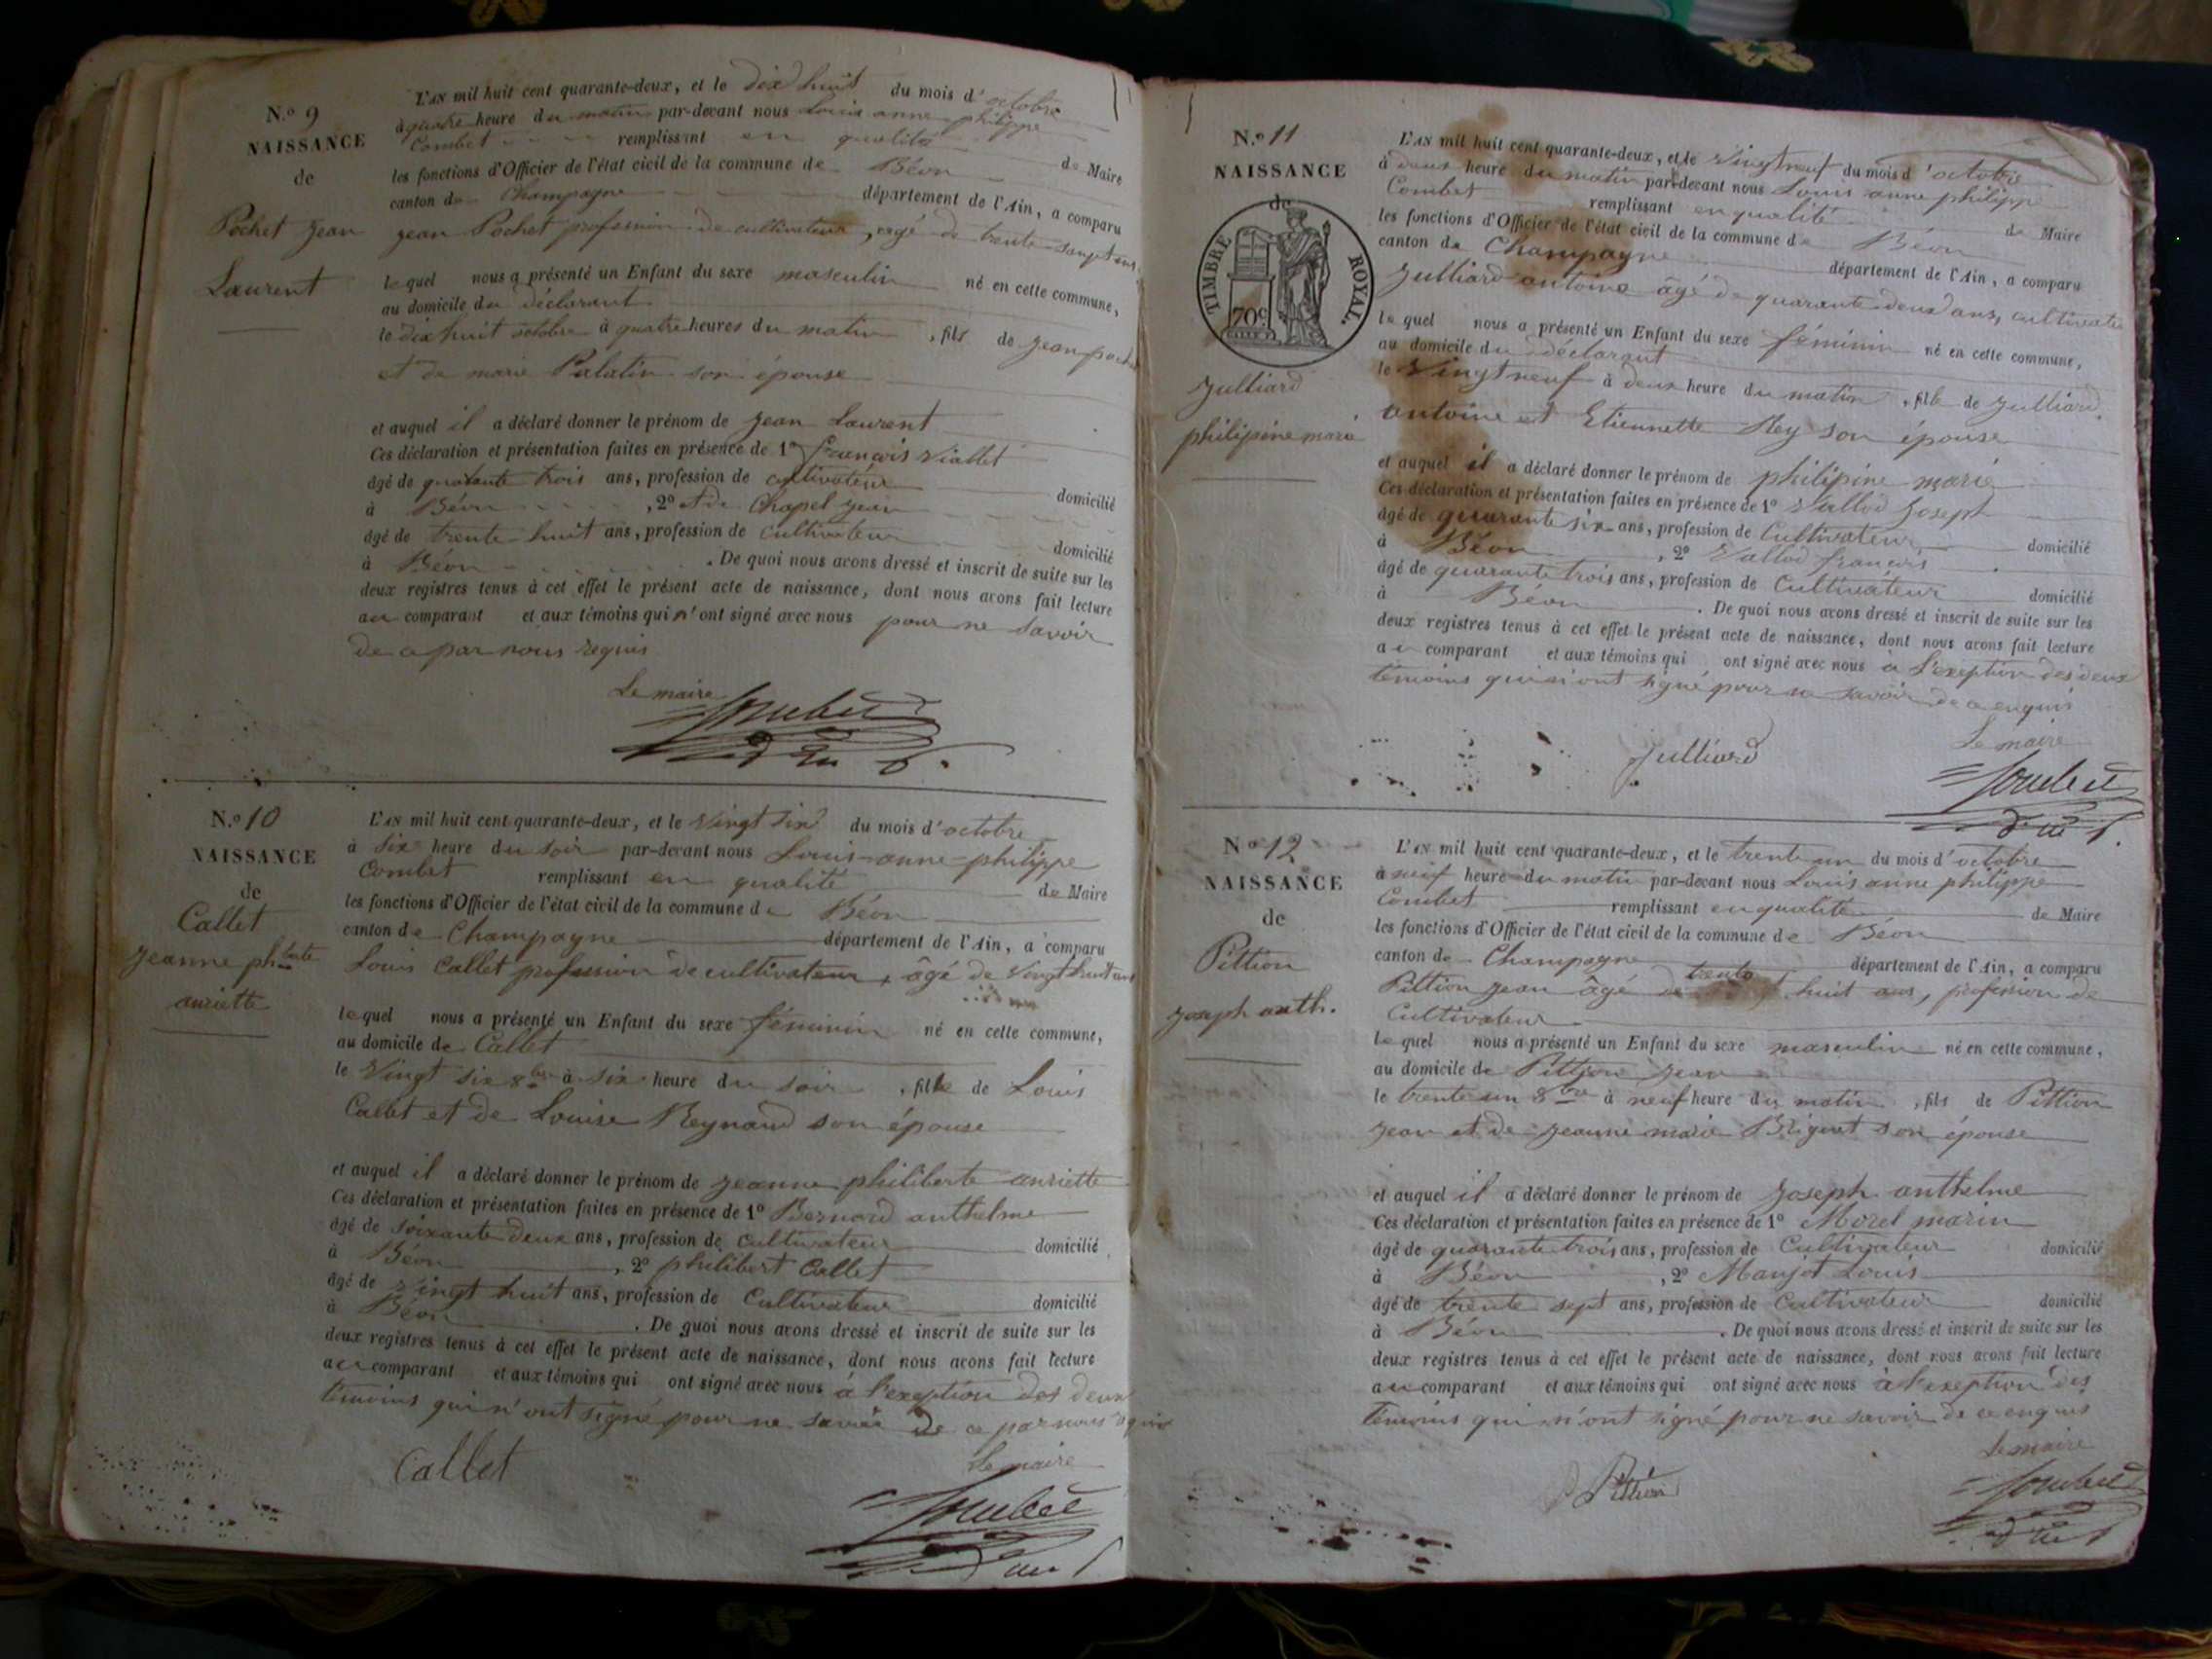 N.º 9
NAISSANCE
de
Pochet Jean
Laurent
L'AN mil huit cent quarante-deux, et le dix huit du mois d'octobre
à quatre heure du matin par-devant nous Louis anne philippe
Combet remplissant en qualité de Maire
les fonctions d'Officier de l'état civil de la commune de Béon
canton de Champagne département de l'Ain, a comparu
Jean Pochet profession de cultivateur, agé de trente-sept ans
lequel nous a présenté un Enfant du sexe masculin né en cette commune,
au domicile du déclarant
le dix huit octobre à quatre heures du matin, fils de Jean pochet
et de marie Palatin son épouse
et auquel il a déclaré donner le prénom de Jean Laurent
Ces déclaration et présentation faites en présence de 1º françois Viallet
âgé de quarante trois ans, profession de cultivateur domicilié
à Béon, 2º Chapel Jean
âgé de trente-huit ans, profession de cultivateur domicilié
à Béon. De quoi nous avons dressé et inscrit de suite sur les
deux registres tenus à cet effet le présent acte de naissance, dont nous avons fait lecture
au comparant et aux témoins qui n'ont signé avec nous pour ne savoir
de ce par nous requis
Le maire
N.º 10
NAISSANCE
de
Callet
Jeanne phberte
anriette
L'AN mil huit cent quarante-deux, et le Vingt six du mois d'octobre
à six heure du soir par-devant nous Louis-anne-philippe
Combet remplissant en qualité de Maire
les fonctions d'Officier de l'état civil de la commune de Béon
canton de Champagne département de l'Ain, a comparu
Louis Callet profession de cultivateur, âgé de Vingt huit ans
lequel nous a présenté un Enfant du sexe féminin né en cette commune,
au domicile de Callet
le Vingt six 8bre à six heure du soir, fille de Louis
Callet et de Louise Reynaud son épouse
et auquel il a déclaré donner le prénom de Jeanne philiberte anriette
Ces déclaration et présentation faites en présence de 1º Bernard anthelme
âgé de soixante deux ans, profession de cultivateur domicilié
à Béon, 2º philibert Callet
âgé de Vingt huit ans, profession de Cultivateur domicilié
à Béon. De quoi nous avons dressé et inscrit de suite sur les
deux registres tenus à cet effet le présent acte de naissance, dont nous avons fait lecture
au comparant et aux témoins qui ont signé avec nous à l'exeption des deux
témoins qui n'ont signé pour ne savoir de ce par nous requis
Callet
Le maire
N.º 11
NAISSANCE
de
TIMBRE ROYAL.
70c
Julliard
philipine marie
L'AN mil huit cent quarante-deux, et le Vingt neuf du mois d'octobre
à deux heure du matin par-devant nous Louis anne philippe
Combet remplissant en qualité de Maire
les fonctions d'Officier de l'état civil de la commune de Béon
canton de Champagne département de l'Ain, a comparu
Julliard antoine âgé de quarante deux ans, cultivateur
lequel nous a présenté un Enfant du sexe féminin né en cette commune,
au domicile du déclarant
le Vingt neuf à deux heure du matin, fille de Julliard
antoine et Etiennette Rey son épouse
et auquel il a déclaré donner le prénom de philipine marie
Ces déclaration et présentation faites en présence de 1º Vallod Joseph
âgé de quarante six ans, profession de Cultivateur domicilié
à Béon, 2º Vallod françois
âgé de quarante trois ans, profession de Cultivateur domicilié
à Béon. De quoi nous avons dressé et inscrit de suite sur les
deux registres tenus à cet effet le présent acte de naissance, dont nous avons fait lecture
au comparant et aux témoins qui ont signé avec nous à l'exeption des deux
témoins qui n'ont signé pour ne savoir de ce enquis
Julliard
Le maire
Nº 12
NAISSANCE
de
Pittion
Joseph anth.
L'AN mil huit cent quarante-deux, et le trente un du mois d'octobre
à neuf heure du matin par-devant nous Louis anne philippe
Combet remplissant en qualité de Maire
les fonctions d'Officier de l'état civil de la commune de Béon
canton de Champagne département de l'Ain, a comparu
Pittion Jean âgé de trente huit ans, profession de
Cultivateur
lequel nous a présenté un Enfant du sexe masculin né en cette commune,
au domicile de Pittion Jean
le trente un 8bre à neuf heure du matin, fils de Pittion
Jean et de Jeanne marie Briguet son épouse
et auquel il a déclaré donner le prénom de Joseph anthelme
Ces déclaration et présentation faites en présence de 1º Morel marin
âgé de quarante trois ans, profession de Cultivateur domicilié
à Béon, 2º Manjot Louis
âgé de trente sept ans, profession de Cultivateur domicilié
à Béon. De quoi nous avons dressé et inscrit de suite sur les
deux registres tenus à cet effet le présent acte de naissance, dont nous avons fait lecture
au comparant et aux témoins qui ont signé avec nous à l'exeption des
témoins qui n'ont signé pour ne savoir de ce enquis
Pittion
Le maire